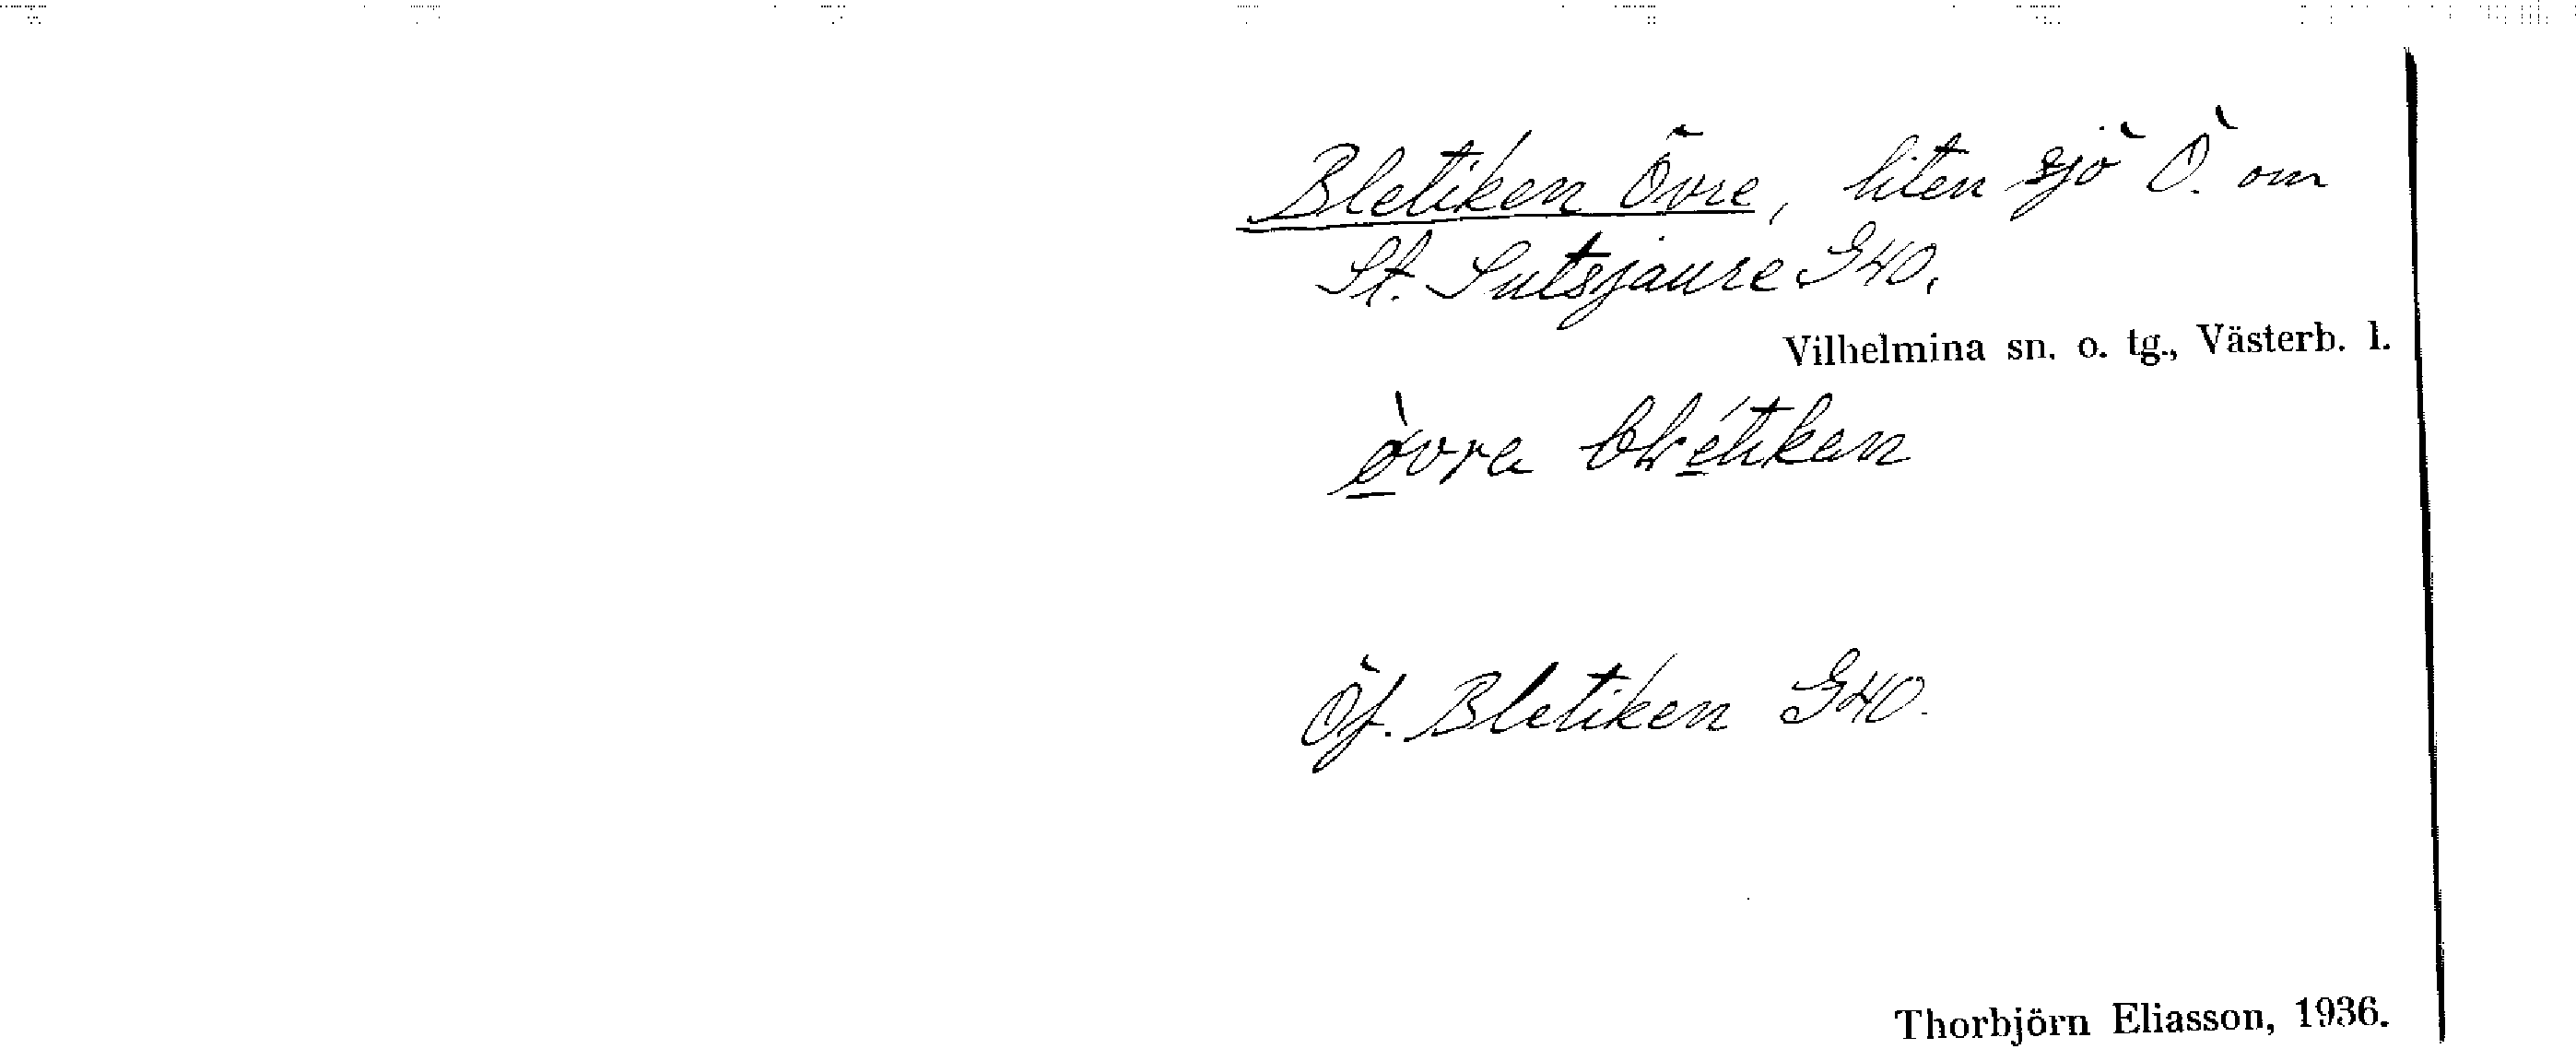 Bletiken Övre, liten sjö Ö. om
St. Sutsjaure G40.
Vilhelmina sn. o. tg., Västerb. l.
övra
Öf. Bletiken G40.
Thorbjörn Eliasson, 1936.